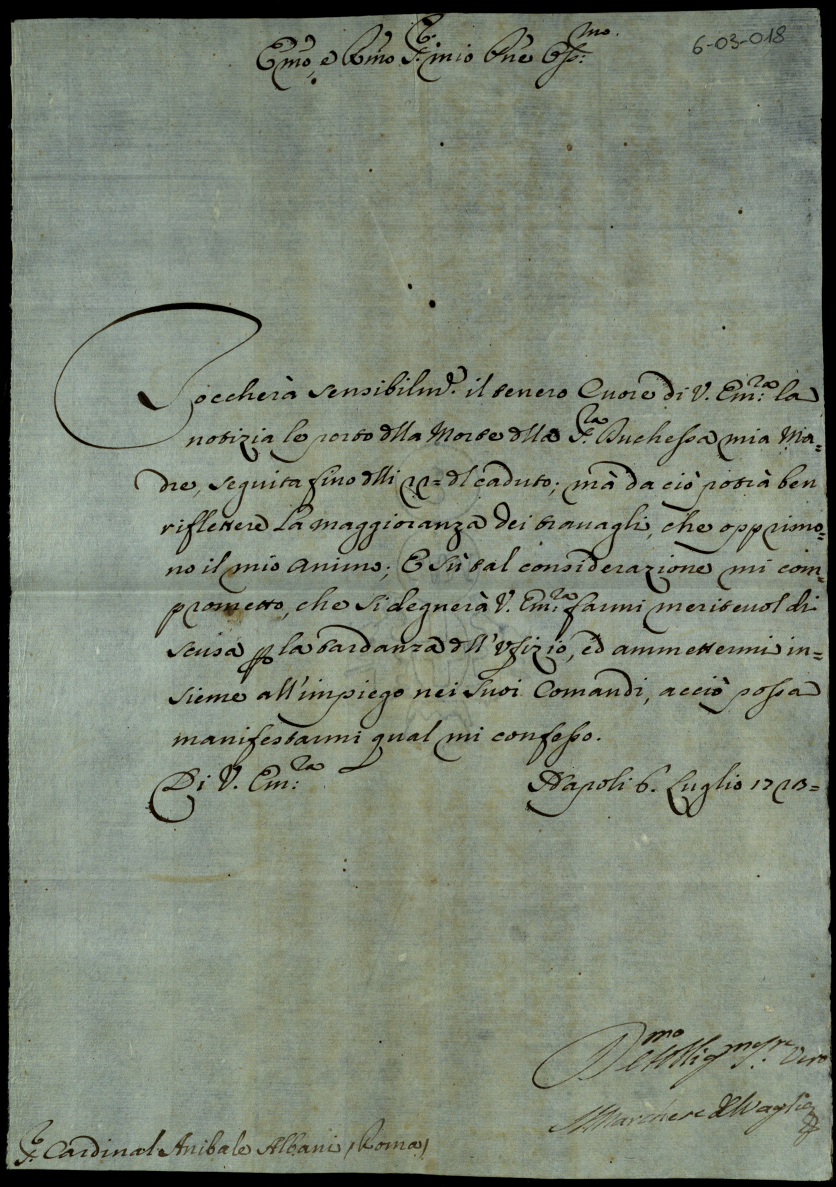 6-03-018
Emo, e Rmo Sr. mio Pne Ossmo.
Toccherà sensibilmte. il tenero Cuore di V. Em:za la
notizia le porto dlla Morte dlla Sra Duchessa mia Ma=
dre, seguita fino dlli 22= dl caduto; mà da ciò potrà ben
riflettere la maggioranza dei travagli, che opprimo=
no il mio animo; E sù tal considerazione mi com=
prometto, che si degnerà V. Em:za farmi meritevol di
scusa p la tardanza dll'Ufizio, ed ammettermi in=
sieme all'impiego nei suoi Comandi, acciò possa
manifestarmi qual mi confesso.
Di V. Em:za Napoli 6. Luglio 1723=
Il Marchese dl
Sr. Cardinal Anibale Albani (Roma)